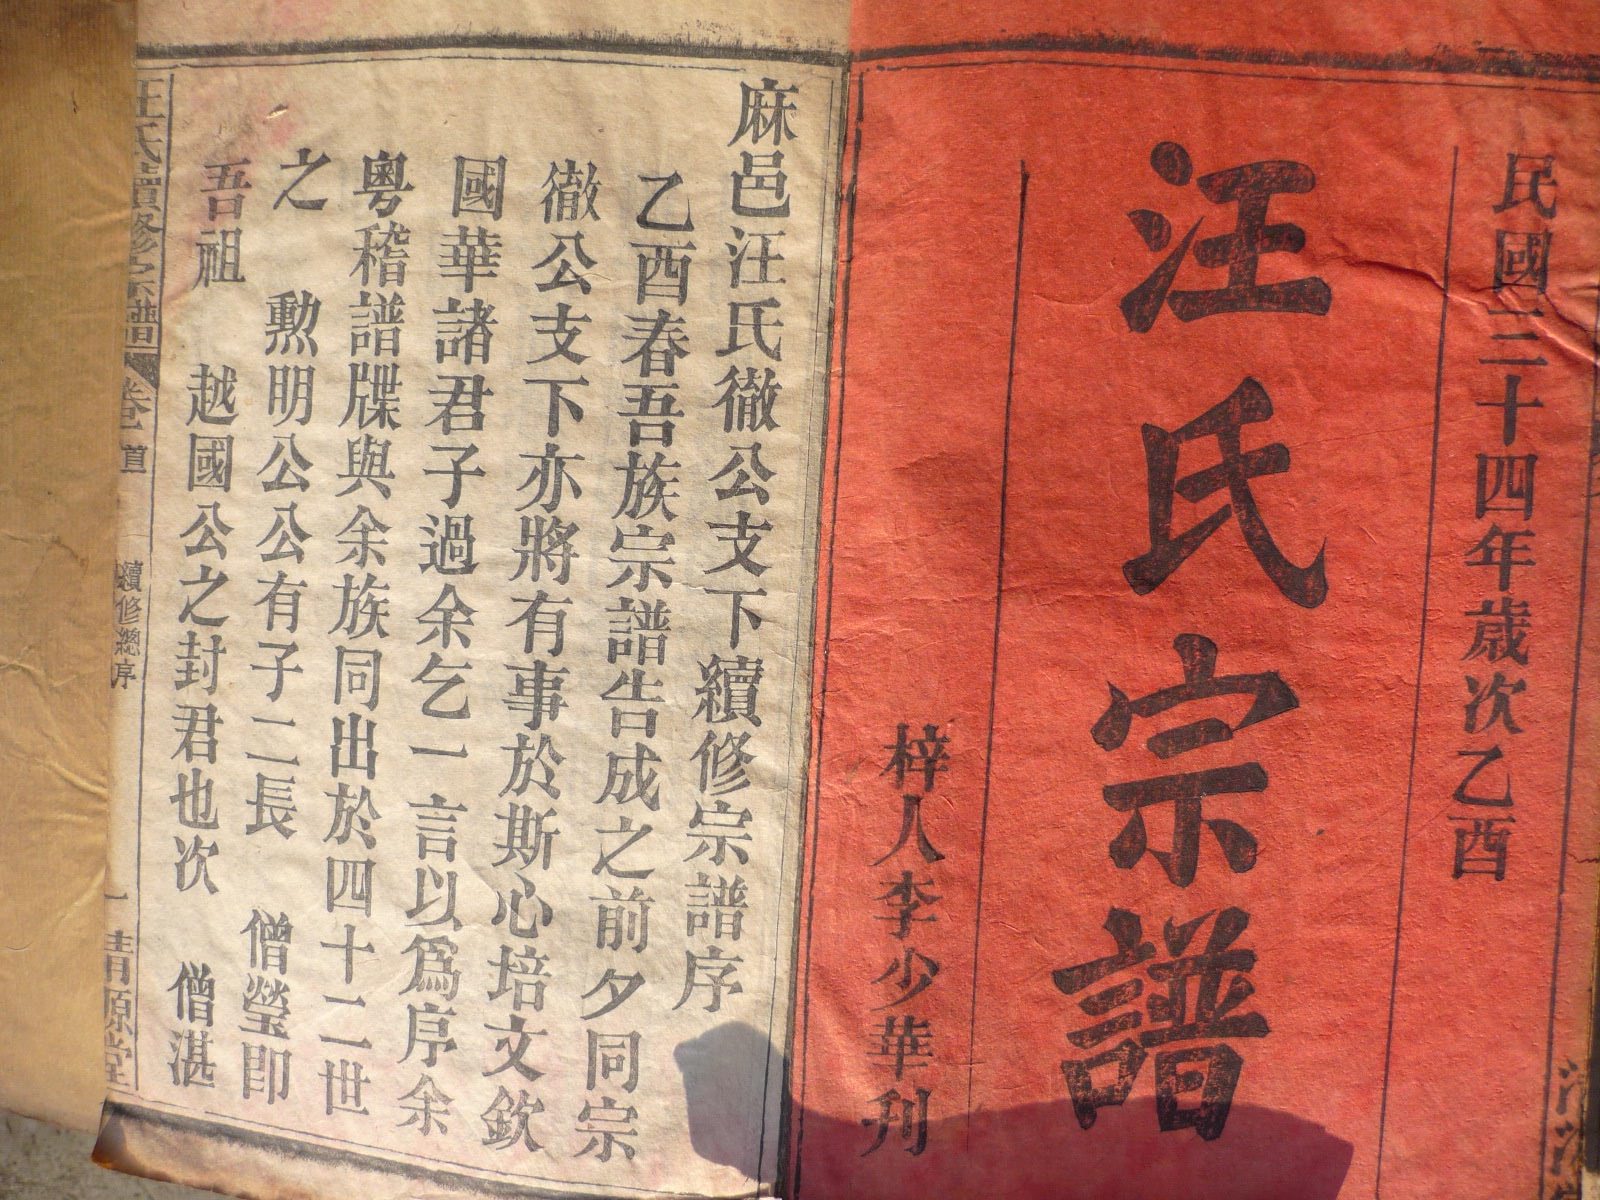 民國三十四年歲次乙酉
汪氏宗譜
梓人李少華刊
麻邑汪氏徹公支下續修宗譜序
乙酉春吾族宗譜告成之前夕同宗
徹公支下亦將有事於斯心培文欽
國華諸君子過余乞一言以爲序余
粵稽譜牒與余族同出於四十二世
之　勲明公公有子二長　僧瑩即
吾祖　越國公之封君也次　僧湛
汪氏續修宗譜　卷首　續修總序　一　清源堂